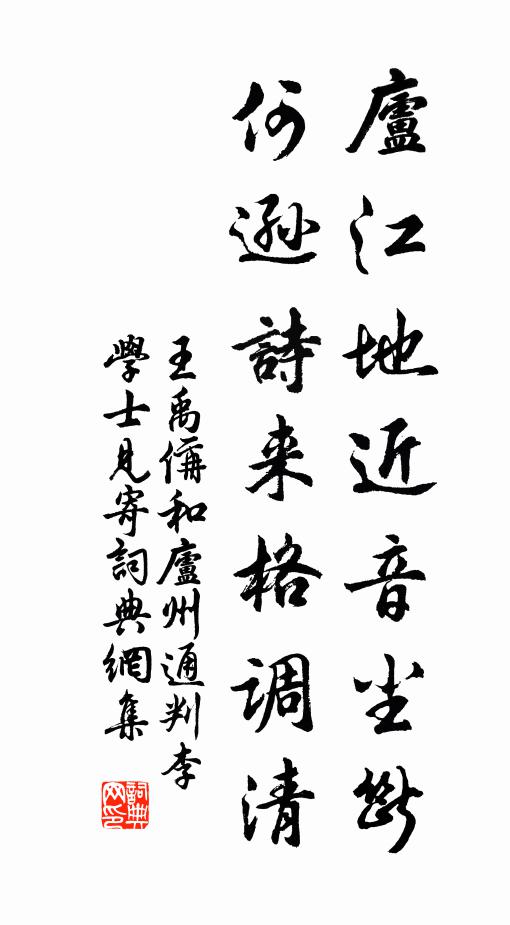 廬江地近音尘斷
何遜詩来格調清
王禹偁和廬州通判李
學士見寄詞典網集
詞典
网印